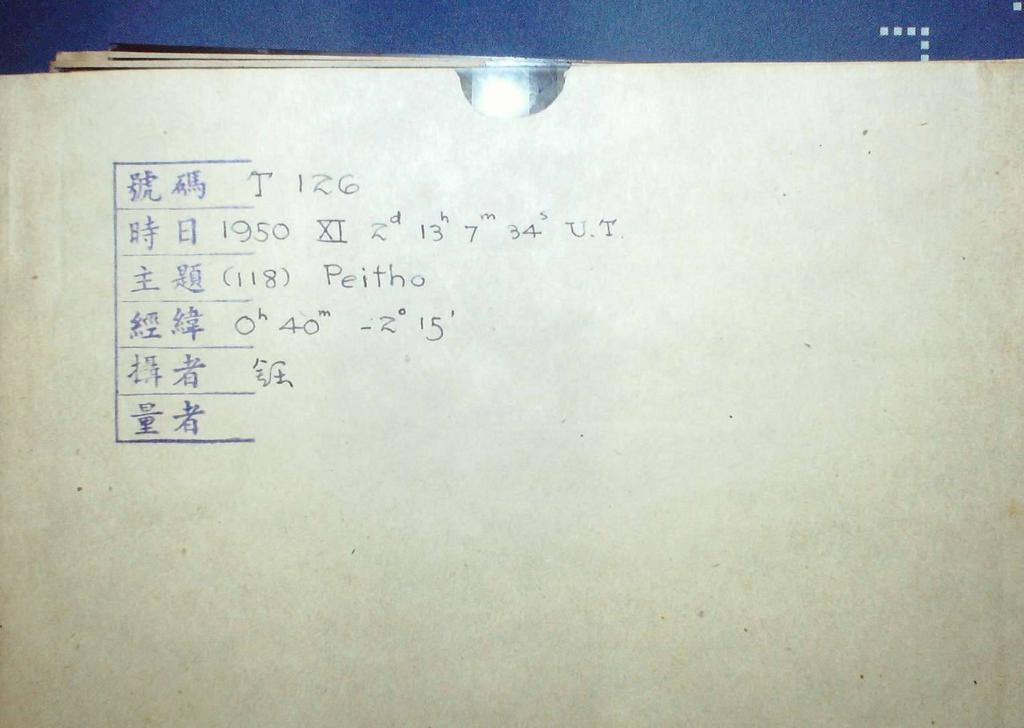 號碼 T 126
時日 1950 XI 2ᵈ 13ʰ 7ᵐ 34ˢ U.T.
主題 (118) Peitho
經緯 0ʰ 40ᵐ -2° 15'
攝者
量者